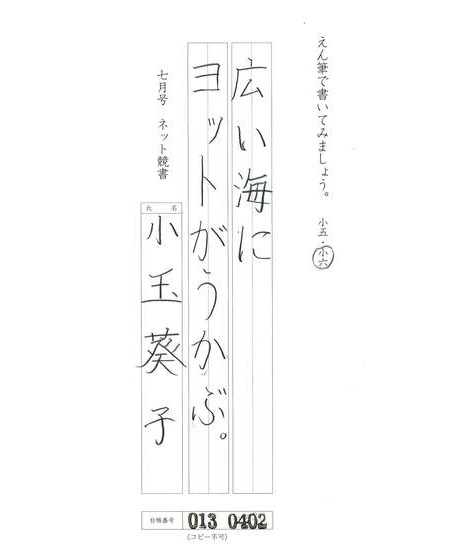 えん筆で書いてみましょう。 小五・小六
広い海に
ヨットがうかぶ。
七月号 ネット競書
氏名
小玉葵子
台帳番号 013 0402
(コピー不可)